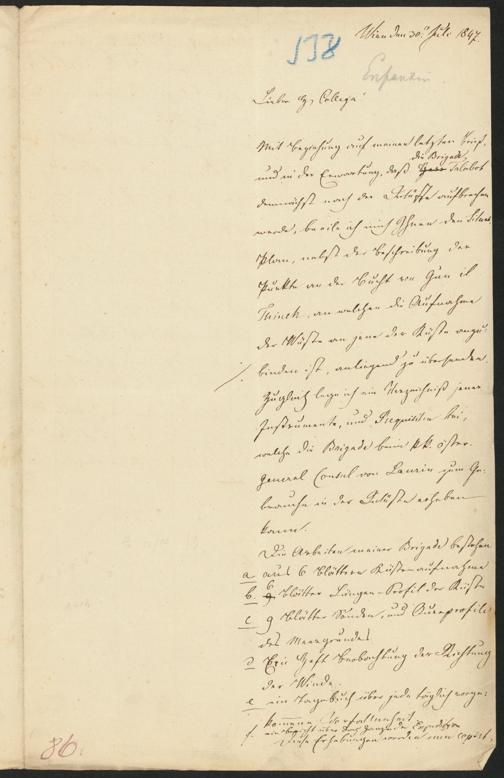 138
Wien den 30.t Juli 1847.
Enfantin
Lieber H. Collega!
Mit Beziehung auf meinen letzten Brief,
und in der Erwartung, daß die Brigade Talabot
demnächst nach der Wüste aufbrechen
werde, beeile ich mich Ihnen den Situat.
Plan, nebst der Beschreibung der
Punkte an der Bucht von Gun il
Tineh, an welchen die Aufnahme
der Wüste an jene der Küste anzu-
binden ist, anliegend zu übersenden.
Zugleich lege ich ein Verzeichniß jener
Instrumente, und Requisiten bei,
welche die Brigade beim kk. öster.
General Consul von Laurin zum Ge-
brauche in der Wüste erheben
kann.
Die Arbeiten meiner Brigade bestehen
a aus 6 Blättern Küstenaufnahme
b. 6 Blätter Längen-Profil der Küste
c 9 Blätter Sonden, und Querprofile
des Meergrundes
d Ein Heft Beobachtung der Richtung
der Winde.
e ein Tagebuch über jede täglich vorge-
kommene Vorfallenheit
f. ein Bericht über die ganze Expedition
Diese Erhebungen werden nun copirt,
86.